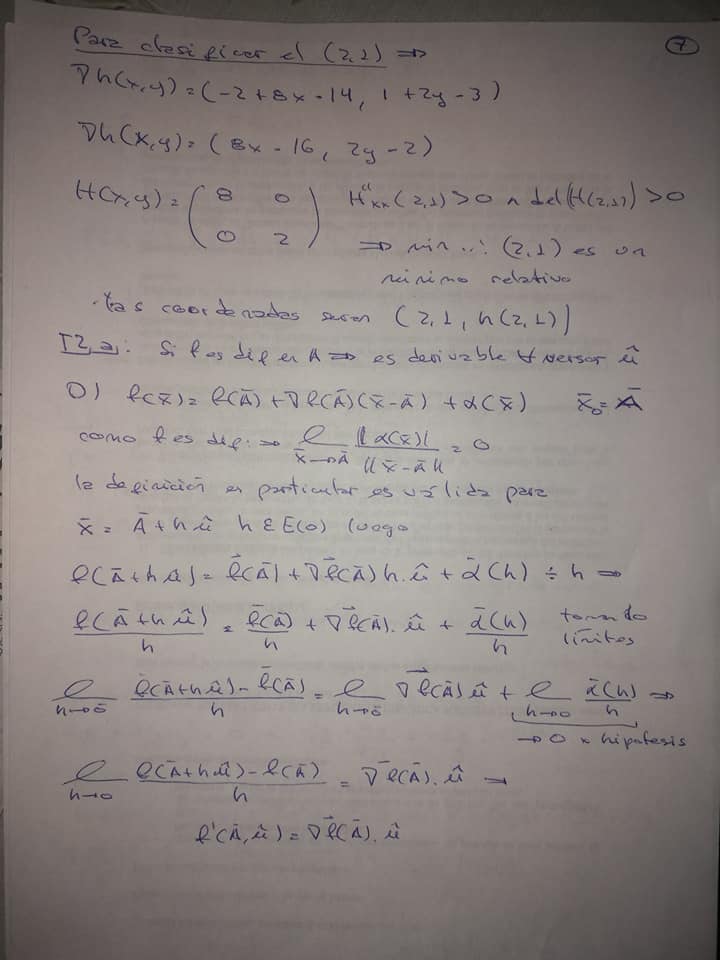 7
Para clasificar el (2,1) ⇒
∇h(x,y) = (-2+8x-14, 1+2y-3)
∇h(x,y) = (8x-16, 2y-2)
H(x,y) = ( 8 0 H''xx(2,1)>0 ∧ det(H(2,1))>0
0 2 ) ⇒ min ∴ (2,1) es un
minimo relativo
·las coordenadas seran (2,1,h(2,1))
T2,a: Si f es dif en A ⇒ es derivable ∀ versor û
D) f(x̄) = f(Ā) + ∇f(Ā)(x̄-ā) + α(x̄) x̄₀ = Ā
como f es dif: ⇒ l x̄→Ā |α(x̄)| / ||x̄-Ā|| = 0
la definición en particular es válida para
x̄ = Ā + hû h ε E(0) luego
f(Ā+hû) = f̄(Ā) + ∇f(Ā)h.û + ᾱ(h) ÷ h ⇒
f(Ā+hû)/h = f̄(Ā)/h + ∇f(Ā).û + ᾱ(h)/h tomando
límites
l h→0 f(Ā+hû)-f(Ā) / h = l h→0 ∇f(Ā)û + l h→0 ᾱ(h)/h ⇒
→0 x hipotesis
l h→0 f(Ā+hû)-f(Ā) / h = ∇f(Ā).û →
f'(Ā,û) = ∇f(Ā).û